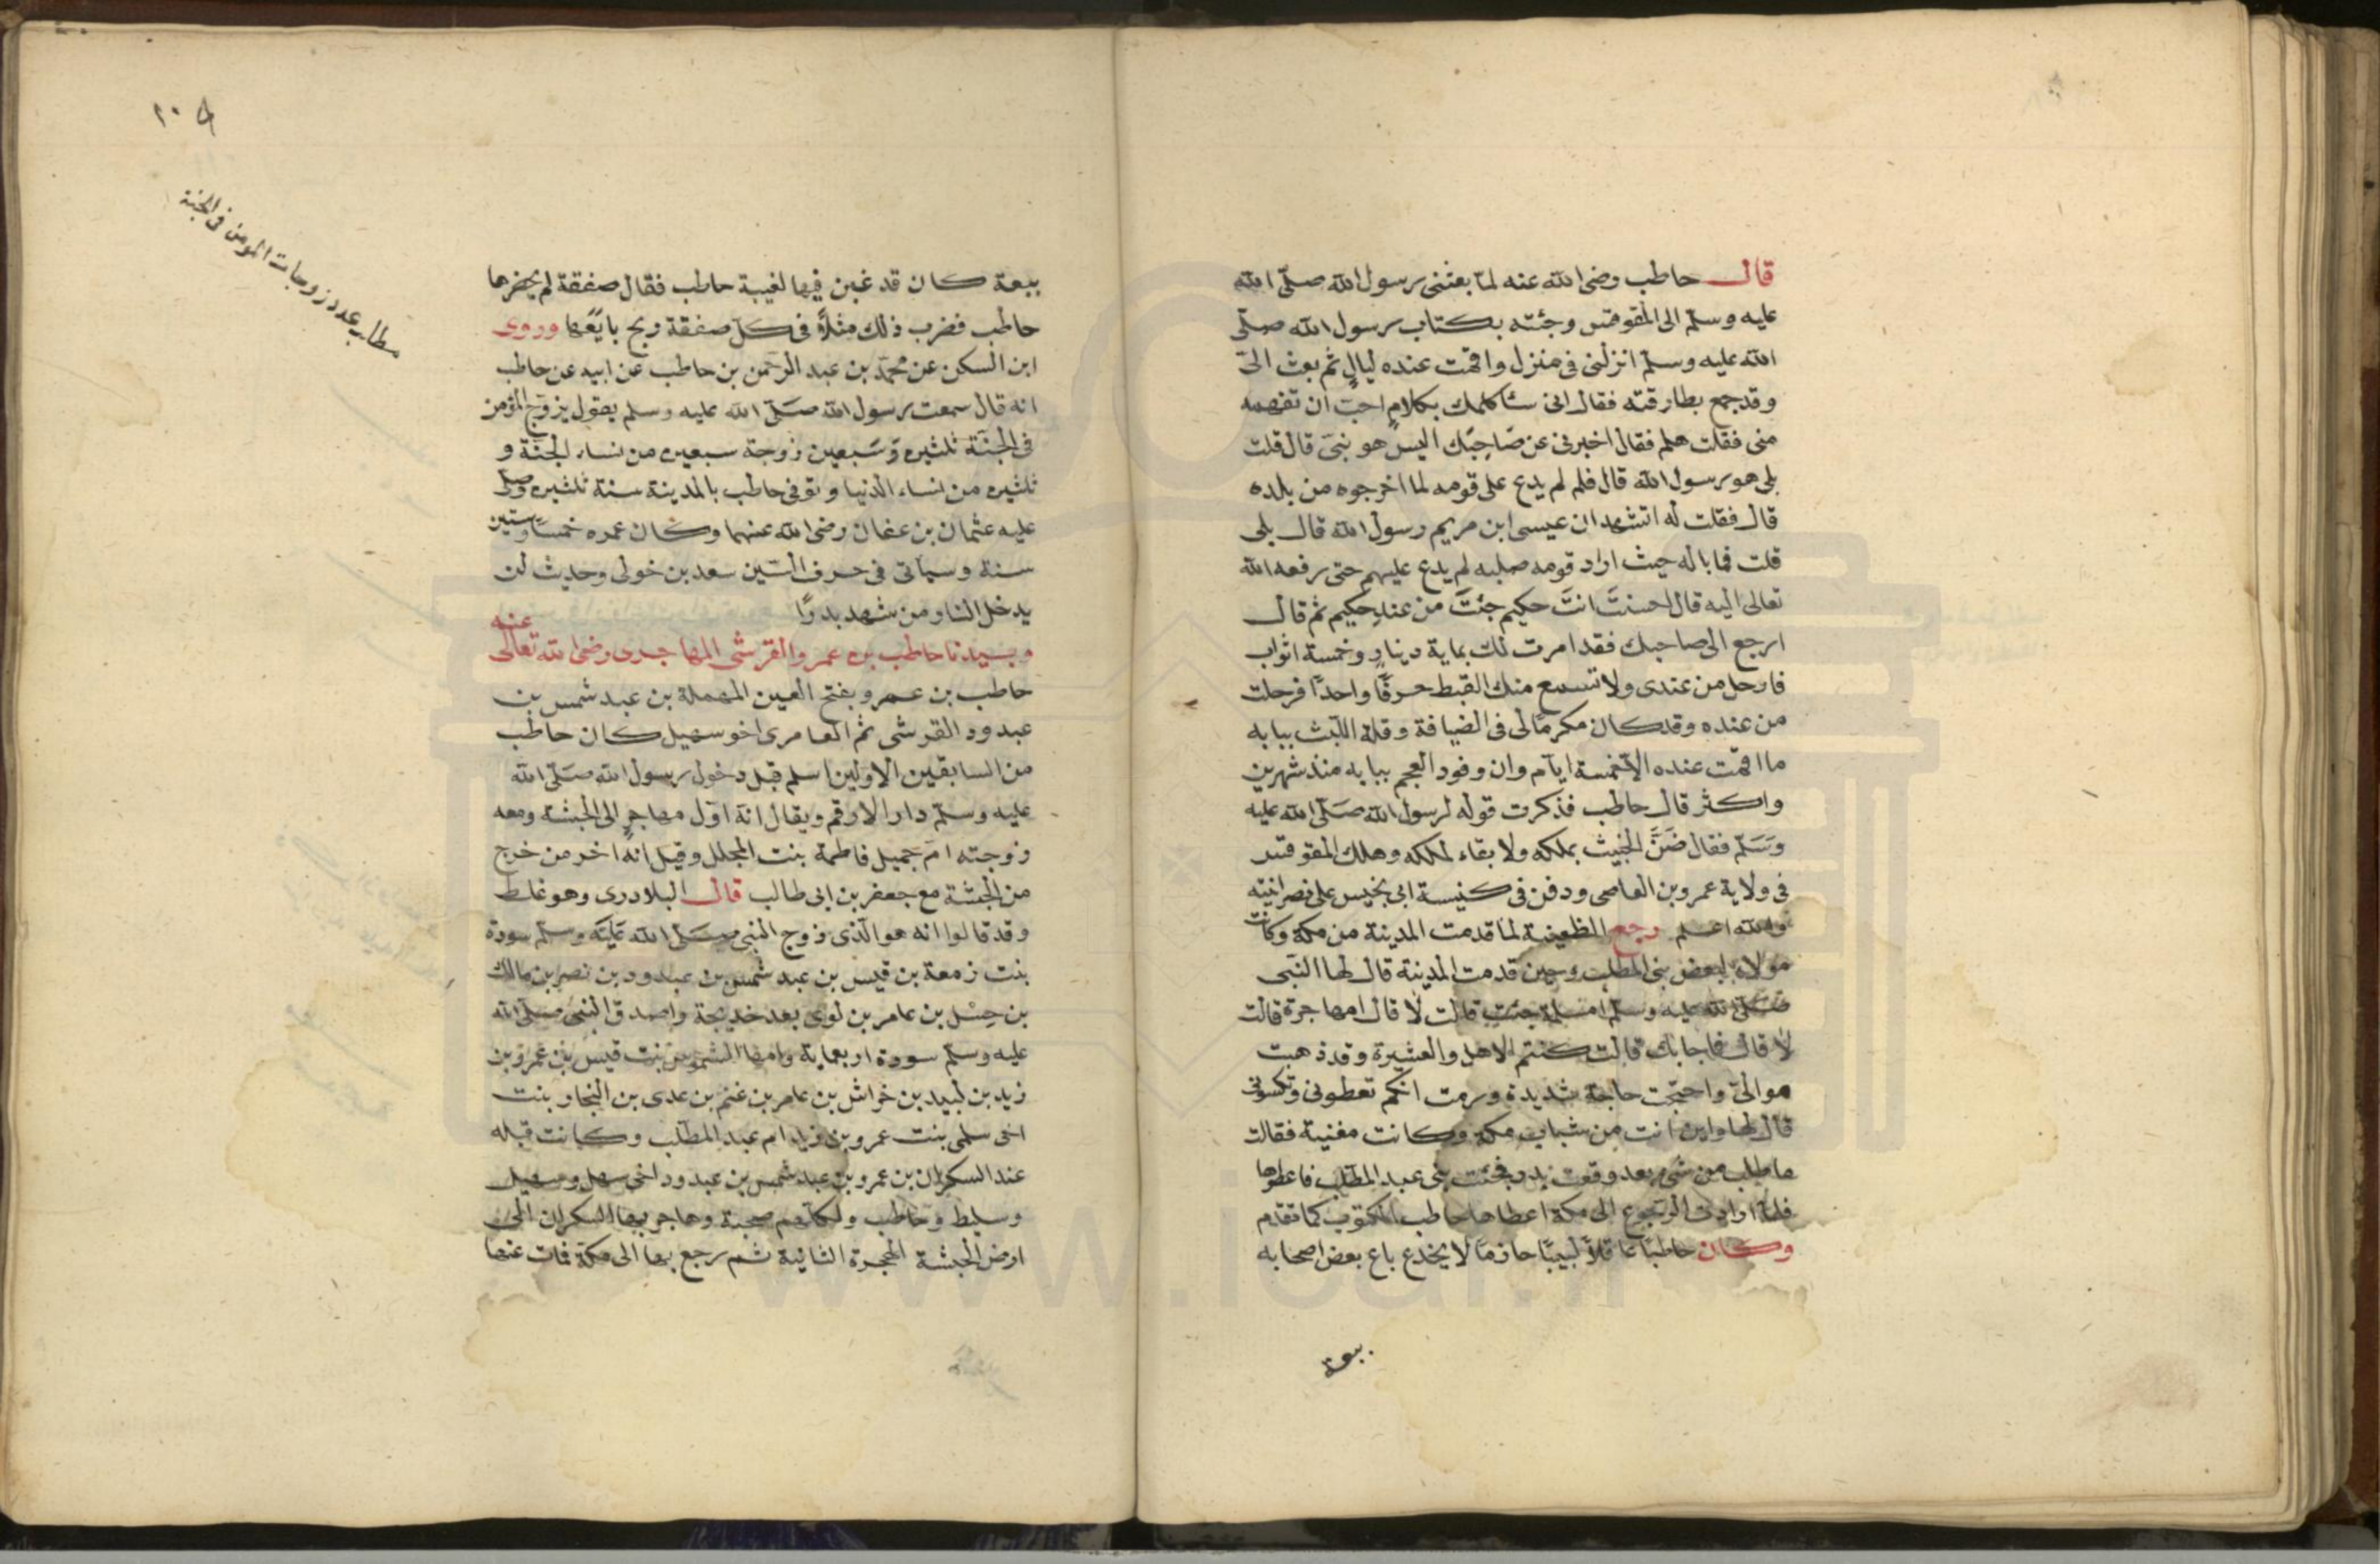 قال حاطب رضى الله عنه لما بعثنى رسول الله صلى الله
عليه وسلم الى المقوقس وجئته بكتاب رسول الله صلى
الله عليه وسلم انزلنى فى منزل واقمت عنده ليال ثم بعث الىّ
وقد جمع بطارقته فقال انى ساكلمك بكلام احب ان تفهمه
منى فقلت هلم فقال اخبرنى عن صاحبك اليس هو نبى قال قلت
بلى هو رسول الله قال فلم لم يدع على قومه لما اخرجوه من بلده
قال فقلت له اتشهد ان عيسى ابن مريم رسول الله قال بلى
قلت فما باله حيث اراد قومه صلبه لم يدع عليهم حتى رفعه الله
تعالى اليه قال احسنت انت حكيم جئت من عند حكيم ثم قال
ارجع الى صاحبك فقد امرت لك بماية دينار وخمسة اثواب
فارحل من عندى ولا تسمع منك القبط حرفًا واحدًا فرحلت
من عنده وقد كان مكرمًا لى فى الضيافة وقلة اللبث ببابه
ما اقمت عنده الا خمسة ايام وان وفود العجم ببابه منذ شهرين
واكثر قال حاطب فذكرت قوله لرسول الله صلى الله عليه
وسلم فقال ضنّ الخبيث بملكه ولا بقاء لملكه وهلك المقوقس
فى ولاية عمرو بن العاصى ودفن فى كنيسة ابى يخنس على نصرانيته
والله اعلم رجع الظعينة لما قدمت المدينة من مكة وكانت
مولاة لبعض بنى المطلب وحين قدمت المدينة قال لها النبى
صلى الله عليه وسلم امسلمة جئت قالت لا قال امهاجرة قالت
لا قال فما جابك قالت كنتم الاهل والعشيرة وقد ذهبت
موالىّ واحتجت حاجة شديدة ورمت انكم تعطونى وتكسونى
قال لها واين انت من شباب مكة وكانت مغنية فقالت
ما طلب من شى بعد وقعت بدر فحثت بنى عبد المطلب فاعطوها
فلما ارادت الرجوع الى مكة اعطاها حاطب المكتوب كما تقدم
وكان حاطبًا عاقلاً لبيبًا حازمًا لا يخدع باع بعض اصحابه
بيعة
٢٠٥
مطلب عدد زوجات المومن فى الجنة
بيعة كان قد غبن فيها لغيبة حاطب فقال صفقة لم يحضرها
حاطب فضرب ذلك مثلاً فى كل صفقة ربح بايعها وروى
ابن السكن عن محمد بن عبد الرحمن بن حاطب عن ابيه عن حاطب
انه قال سمعت رسول الله صلى الله عليه وسلم يقول يزوج المؤمن
فى الجنة ثلثين وسبعين زوجة سبعين من نساء الجنة و
ثلثين من نساء الدنيا وتوفى حاطب بالمدينة سنة ثلثين وصلى
عليه عثمان بن عفان رضى الله عنهما وكان عمره خمسًا وستين
سنة وسياتى فى حرف السين سعد بن خولى وحديث لن
يدخل النار من شهد بدرًا
وسيدنا حاطب بن عمرو القرشى المهاجرى رضى الله تعالى عنه
حاطب بن عمرو بفتح العين المهملة بن عبد شمس بن
عبدود القرشى ثم العامرى اخو سهيل كان حاطب
من السابقين الاولين اسلم قبل دخول رسول الله صلى الله
عليه وسلم دار الارقم ويقال انه اول مهاجر الى الحبشة ومعه
زوجته ام جميل فاطمة بنت المجلل وقيل انه اخر من خرج
من الحبشة مع جعفر بن ابى طالب قال البلادرى وهو غلط
وقد قالوا انه هو الذى زوج النبى صلى الله عليه وسلم سودة
بنت زمعة بن قيس بن عبد شمس بن عبدود بن نصر بن مالك
بن حسل بن عامر بن لوى بعد خديجة واصدق النبى صلى الله
عليه وسلم سودة اربعماية وامها الشموس بنت قيس بن عمرو بن
زيد بن لبيد بن خراش بن عامر بن غنم بن عدى بن النجار بنت
اخى سلمى بنت عمرو بن زيد ام عبد المطلب وكانت قبله
عند السكران بن عمرو بن عبد شمس بن عبدود اخى سهل وسهيل
وسليط وحاطب ولكلهم صحبة وهاجر بها السكران الى
ارض الحبشة الهجرة الثانية ثم رجع بها الى مكة فمات عنها